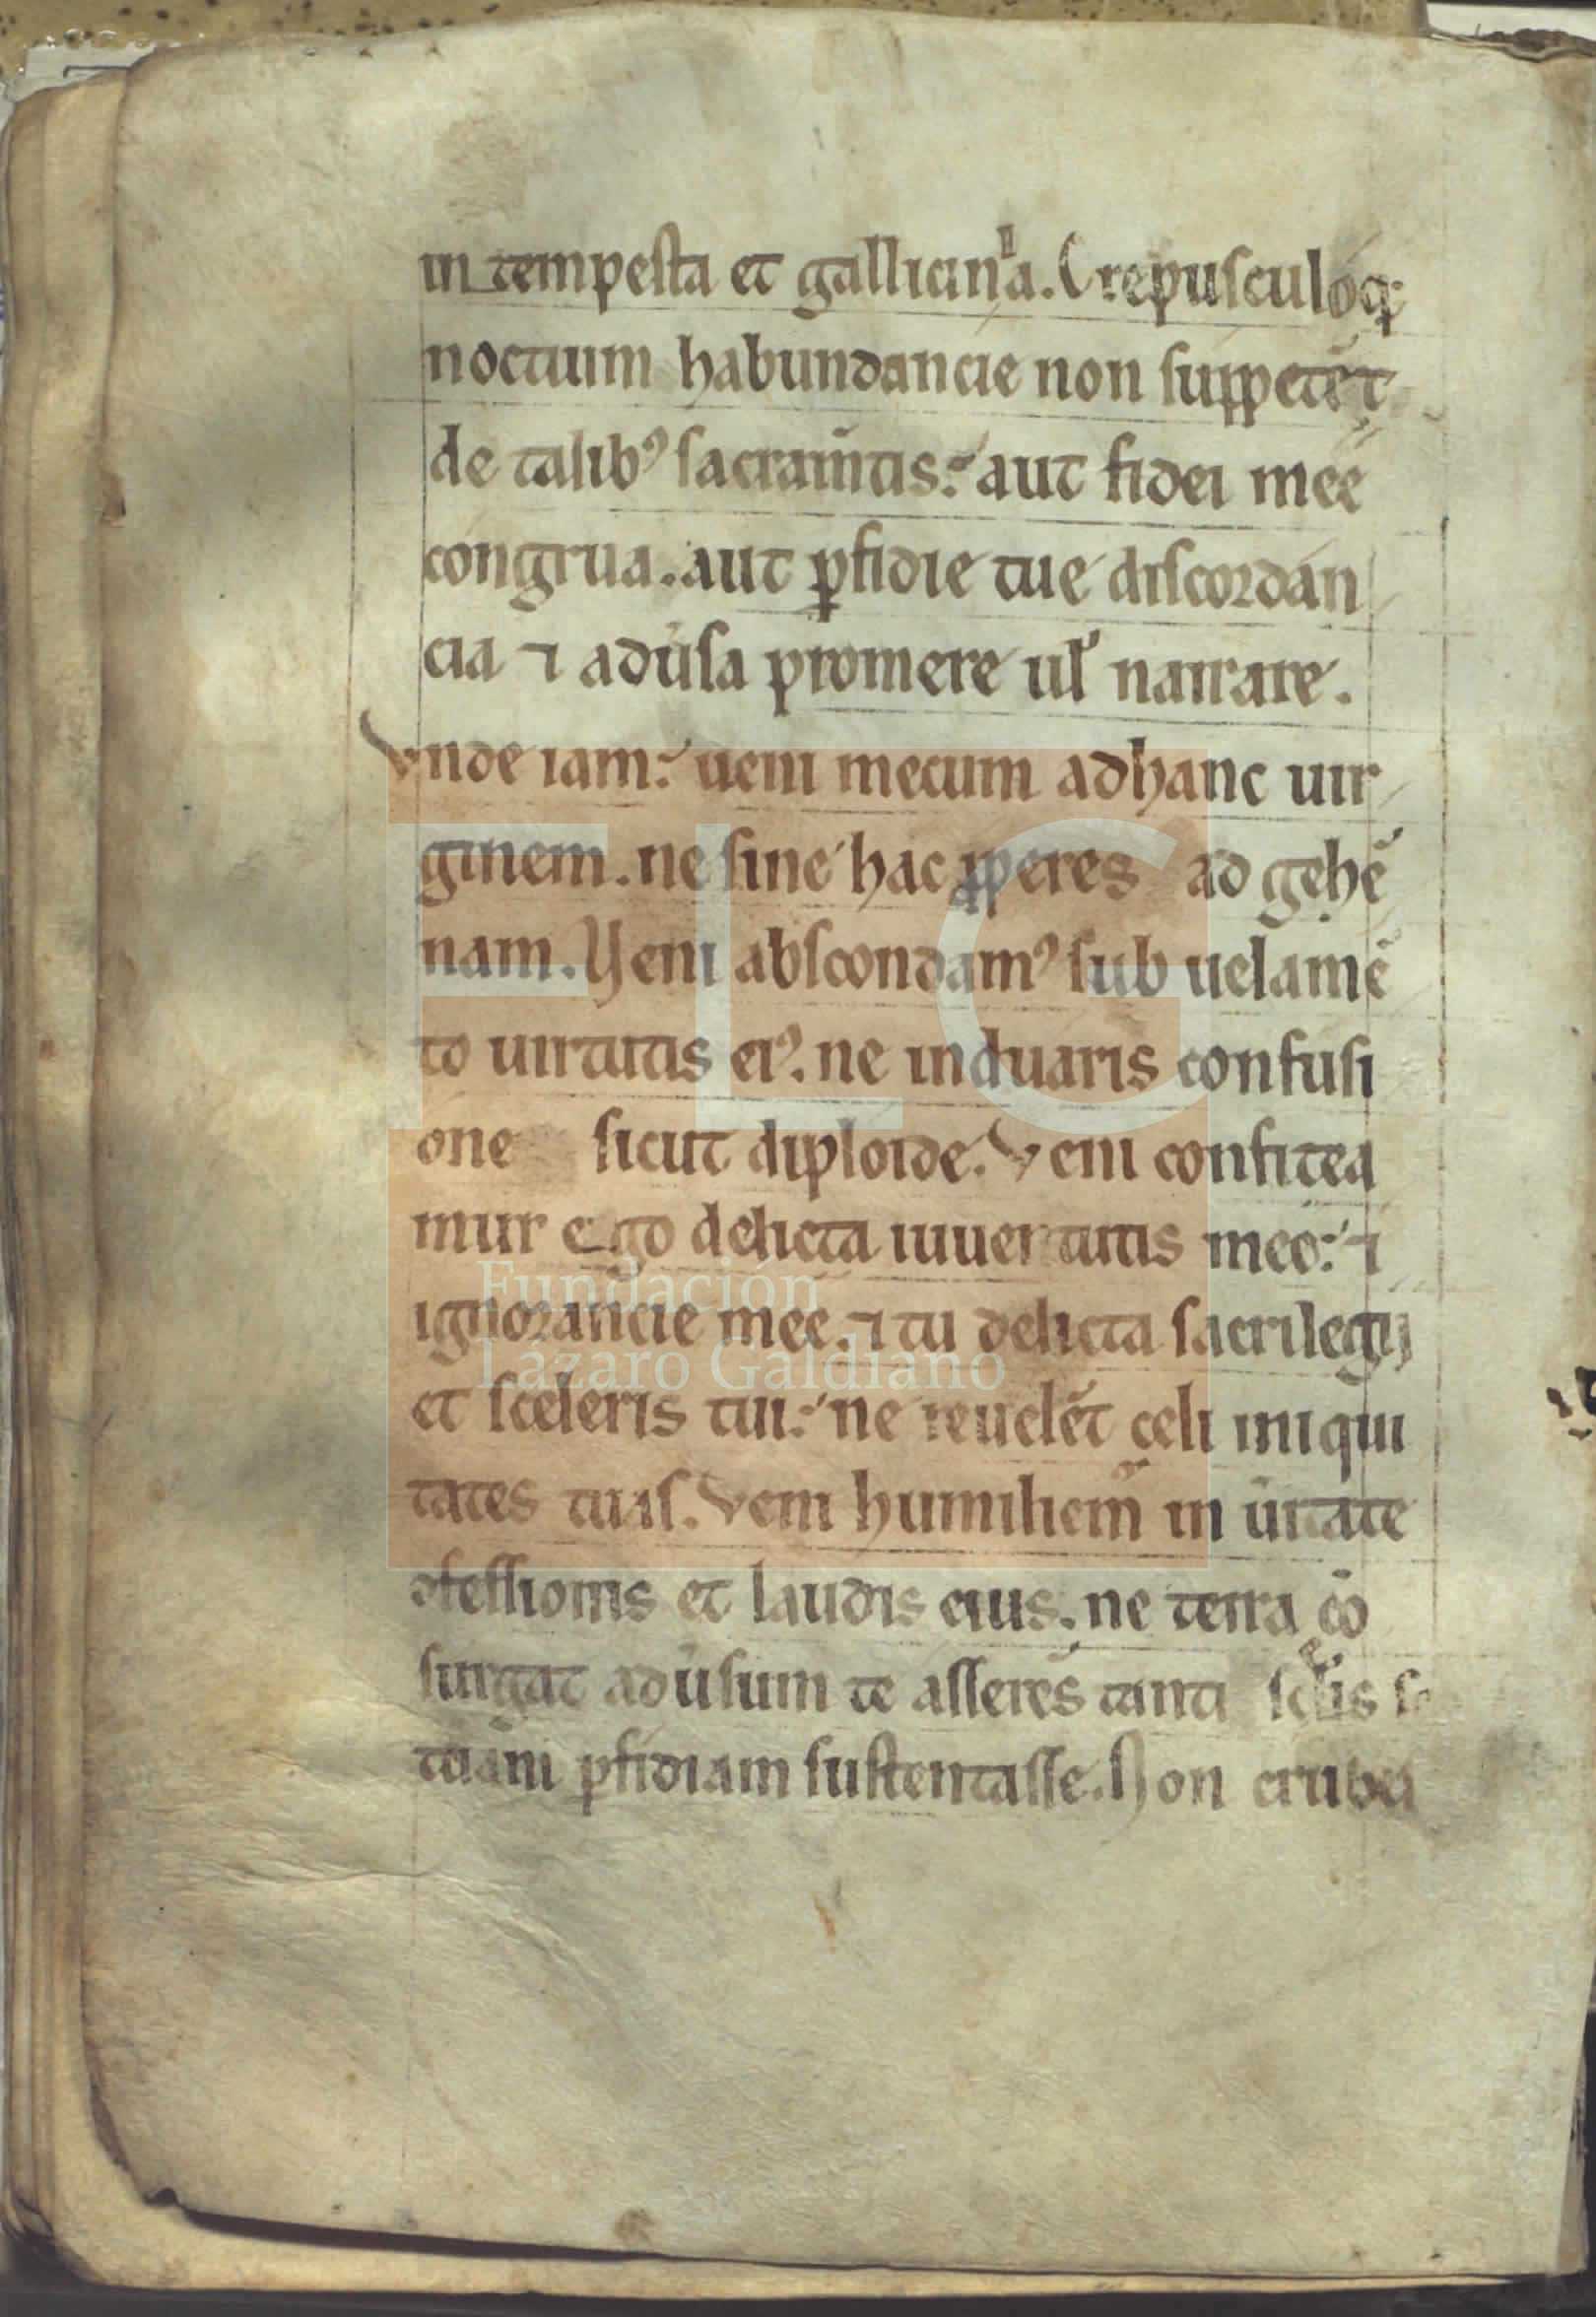 in tempesta et gallicinia. Crepusculoq;
noctium habundancie non suppetēt
de talib⁹ sacram̄tis: aut fidei mee
congrua. aut ꝑfidie tue discordan
cia ⁊ adūsa promere ul̕ narrare.
Vnde iam: ueni mecum ad hanc uir
ginem. ne sine hac ꝓperes ad gehē
nam. Veni abscondam⁹ sub uelamē
to uirtutis ei⁹. ne induaris confusi
one sicut diploide. Veni confitea
mur ego delicta iuuentutis meo: ⁊
ignorancie mee. ⁊ tu delicta sacrilegij
et sceleris tui: ne reuelēt celi iniqui
tates tuas. Veni humiliem̄ in ūitate
ↄfessionis et laudis eius. ne terra cō
surgat adūsum te asserēs tanti scelis
tuam ꝑfidiam sustentasse. Non erube
FLG
Fundación
Lázaro Galdiano